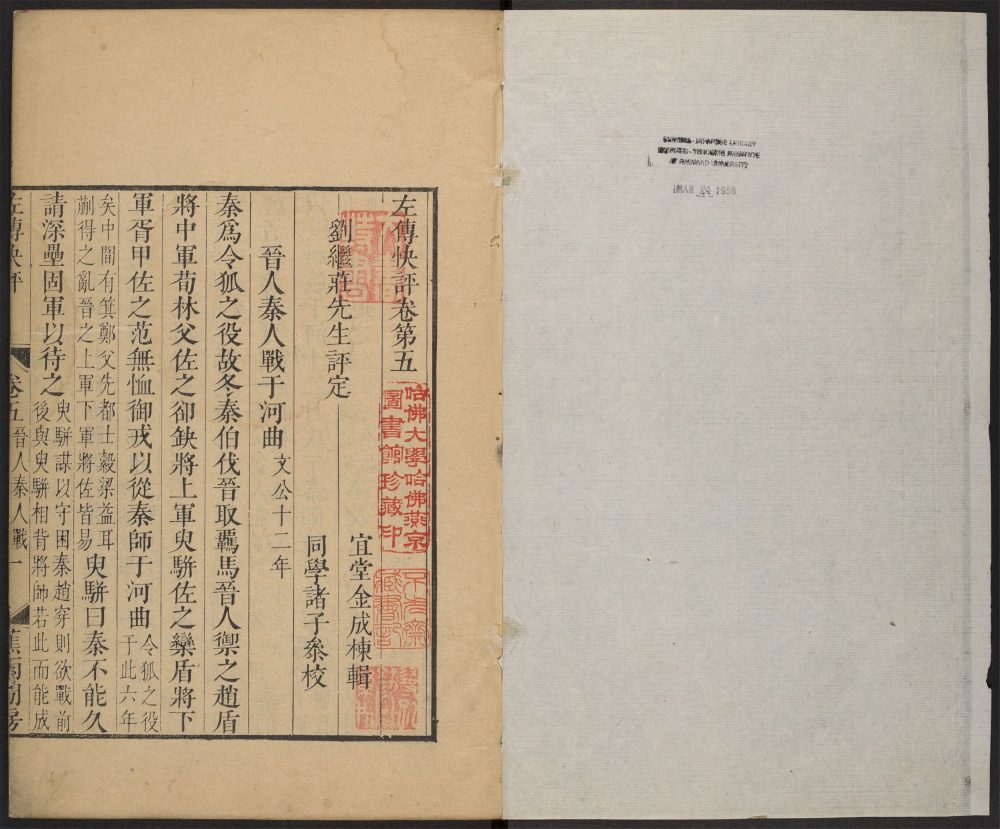 CHINESE-JAPANESE LIBRARY
HARVARD-YENCHING INSTITUTE
AT HARVARD UNIVERSITY
MAR 24 1958
左傳快評卷第五
劉繼莊先生評定
宜堂金成棟輯
同學諸子參校
哈佛大學哈佛燕京
圖書館珍藏印
晉人秦人戰于河曲 文公十二年
秦爲令狐之役故冬秦伯伐晉取羈馬晉人禦之趙盾
將中軍荀林父佐之卻缺將上軍臾駢佐之欒盾將下
軍胥甲佐之范無恤御戎以從秦師于河曲 令狐之役
于此六年
矣中間有箕鄭父先都士縠梁益耳
蒯得之亂晉之上軍下軍將佐皆易 臾駢曰秦不能久
請深壘固軍以待之 臾駢謀以守困秦趙穿則欲戰前
後與臾駢相背將帥若此而能成
左傳快評
卷五 晉人秦人戰 一
蕉雨閒房